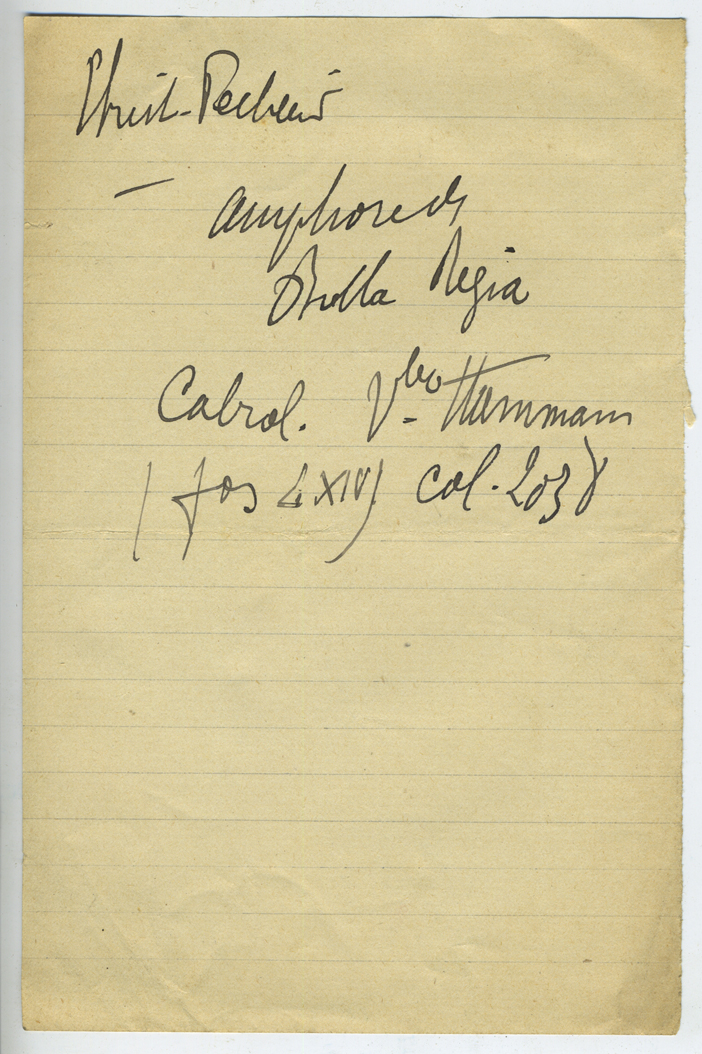 Christ-Pecheur
— amphore de
Bulla Regia
Cabrol. Vbo Hammam
(fas LXIV) col. 2038